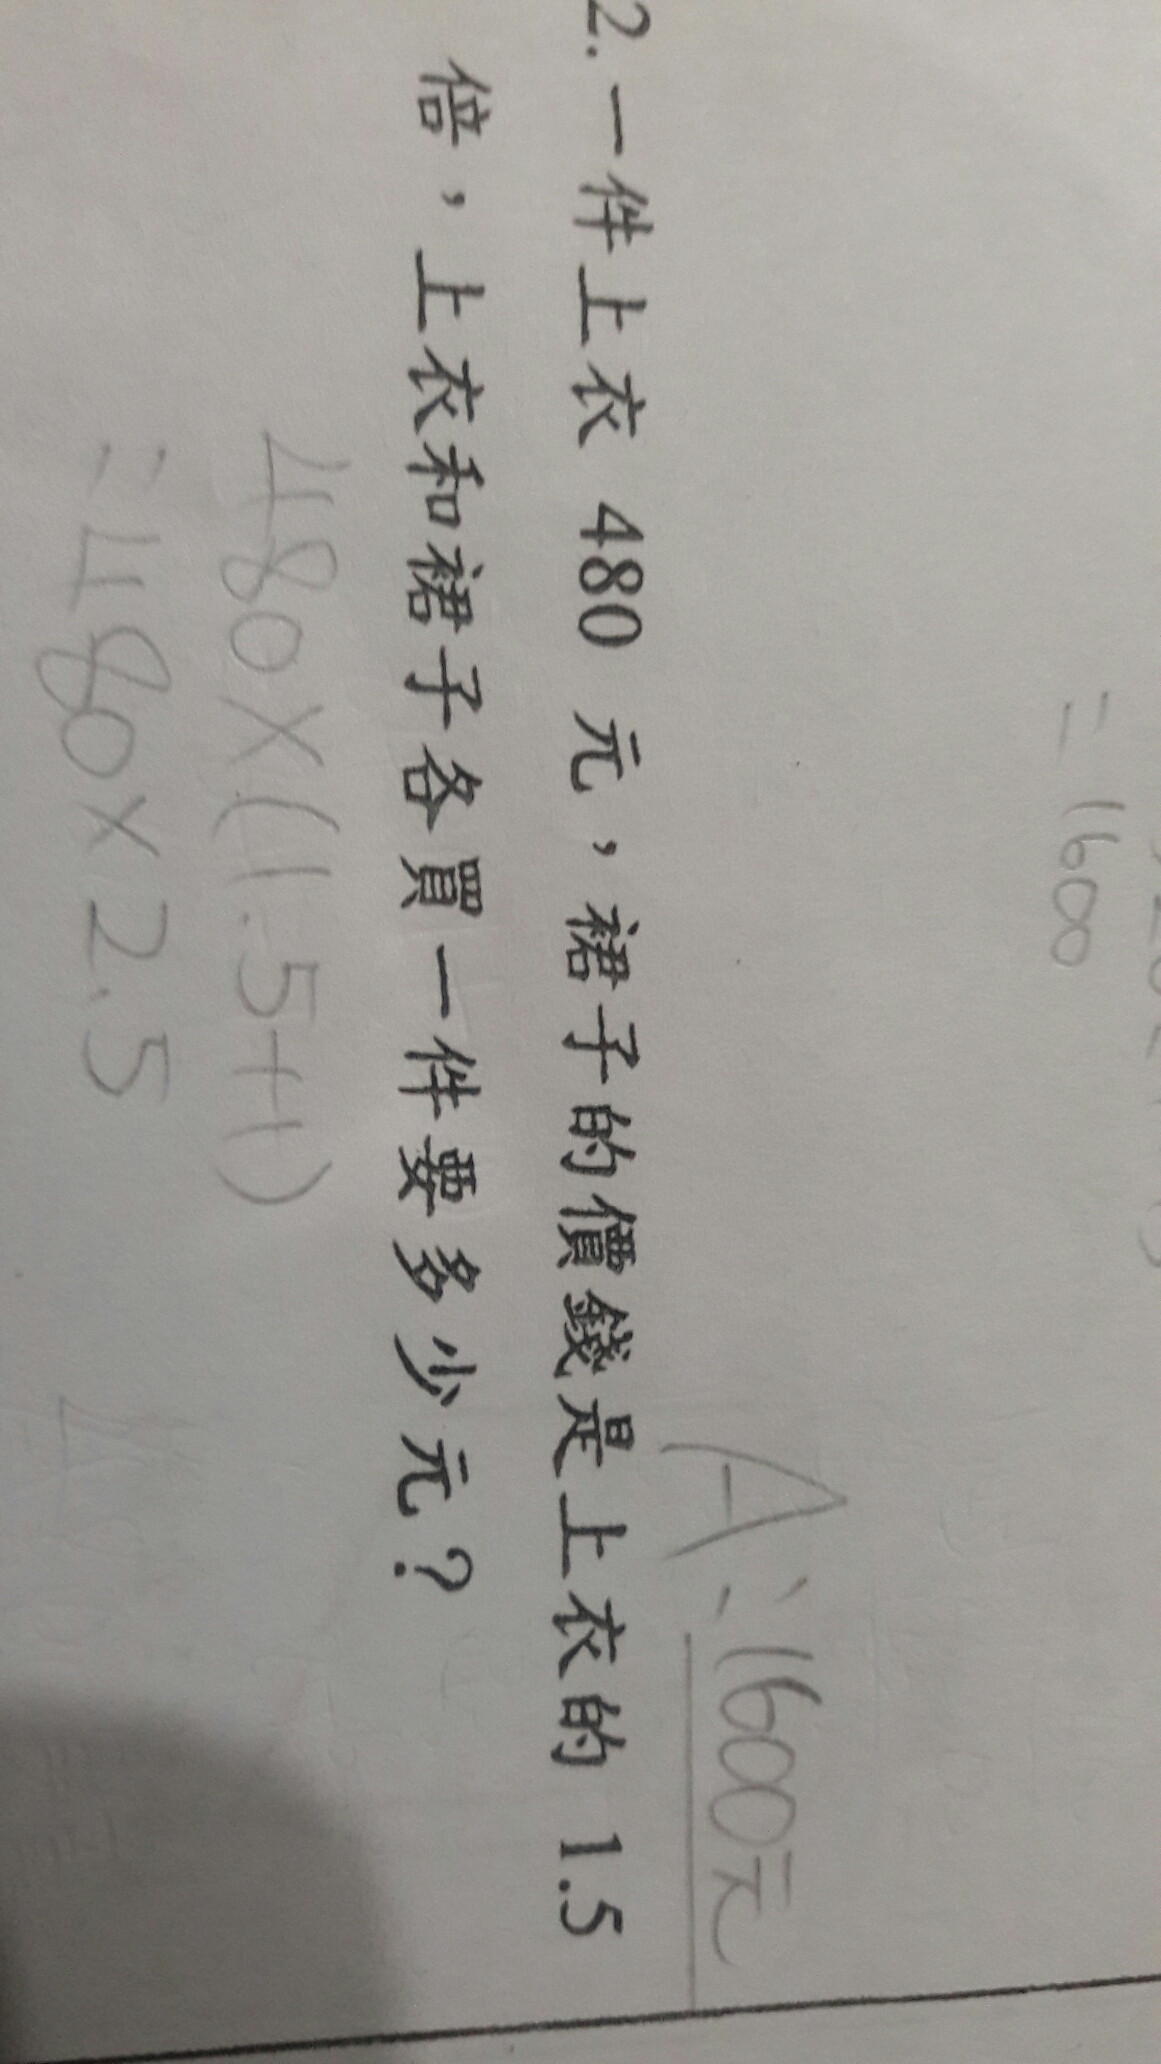 =1600
A:1600元
2. 一件上衣 480 元，裙子的價錢是上衣的 1.5
倍，上衣和裙子各買一件要多少元？
480×(1.5+1)
=480×2.5